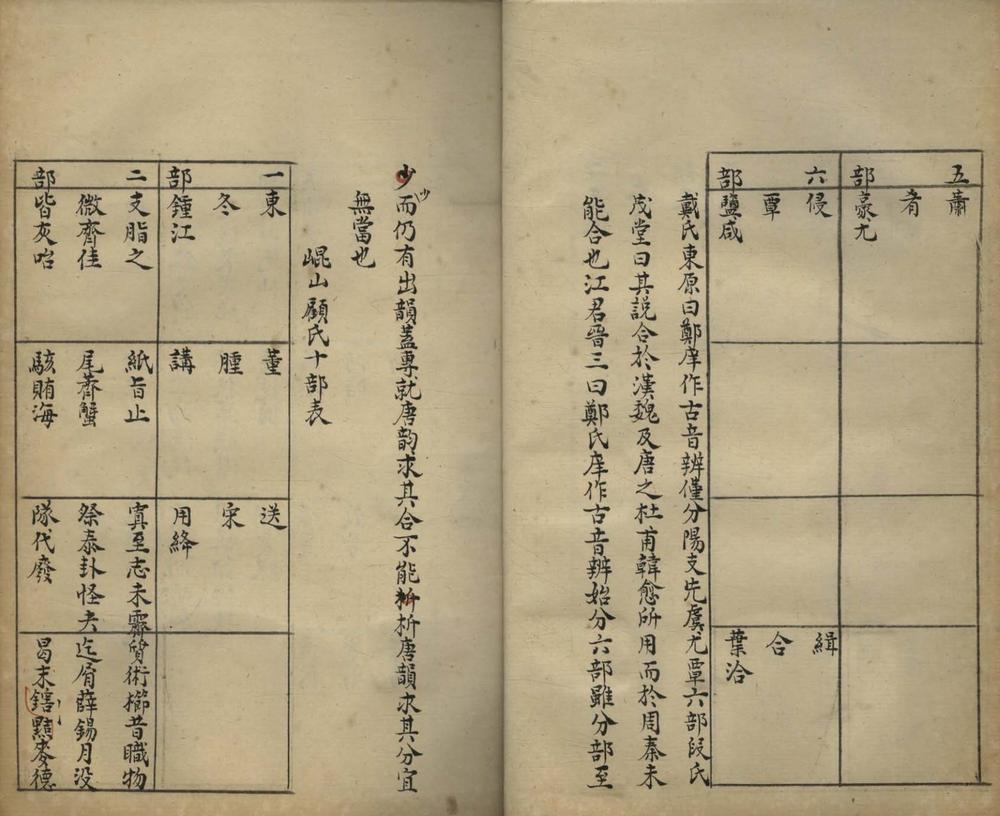 五蕭
肴
部豪尤
六侵
覃
部鹽咸
緝
合
葉洽
戴氏東原曰鄭庠作古音辨僅分陽支先虞尤覃六部段氏
茂堂曰其説合於漢魏及唐之杜甫韓愈所用而於周秦未
能合也江君晉三曰鄭氏庠作古音辨始分六部雖分部至
少而仍有出韻蓋專就唐韵求其合不能析唐韻求其分宜
少
無當也
崐山顧氏十部表
一東
冬
部鍾江
董
腫
講
送
宋
用絳
二支脂之
微齊佳
部皆灰咍
紙旨止
尾薺蟹
駭賄海
寘至志未霽
祭泰卦怪夬
隊代廢
質術櫛昔職物
迄屑薛錫月没
曷末鎋黠麥德